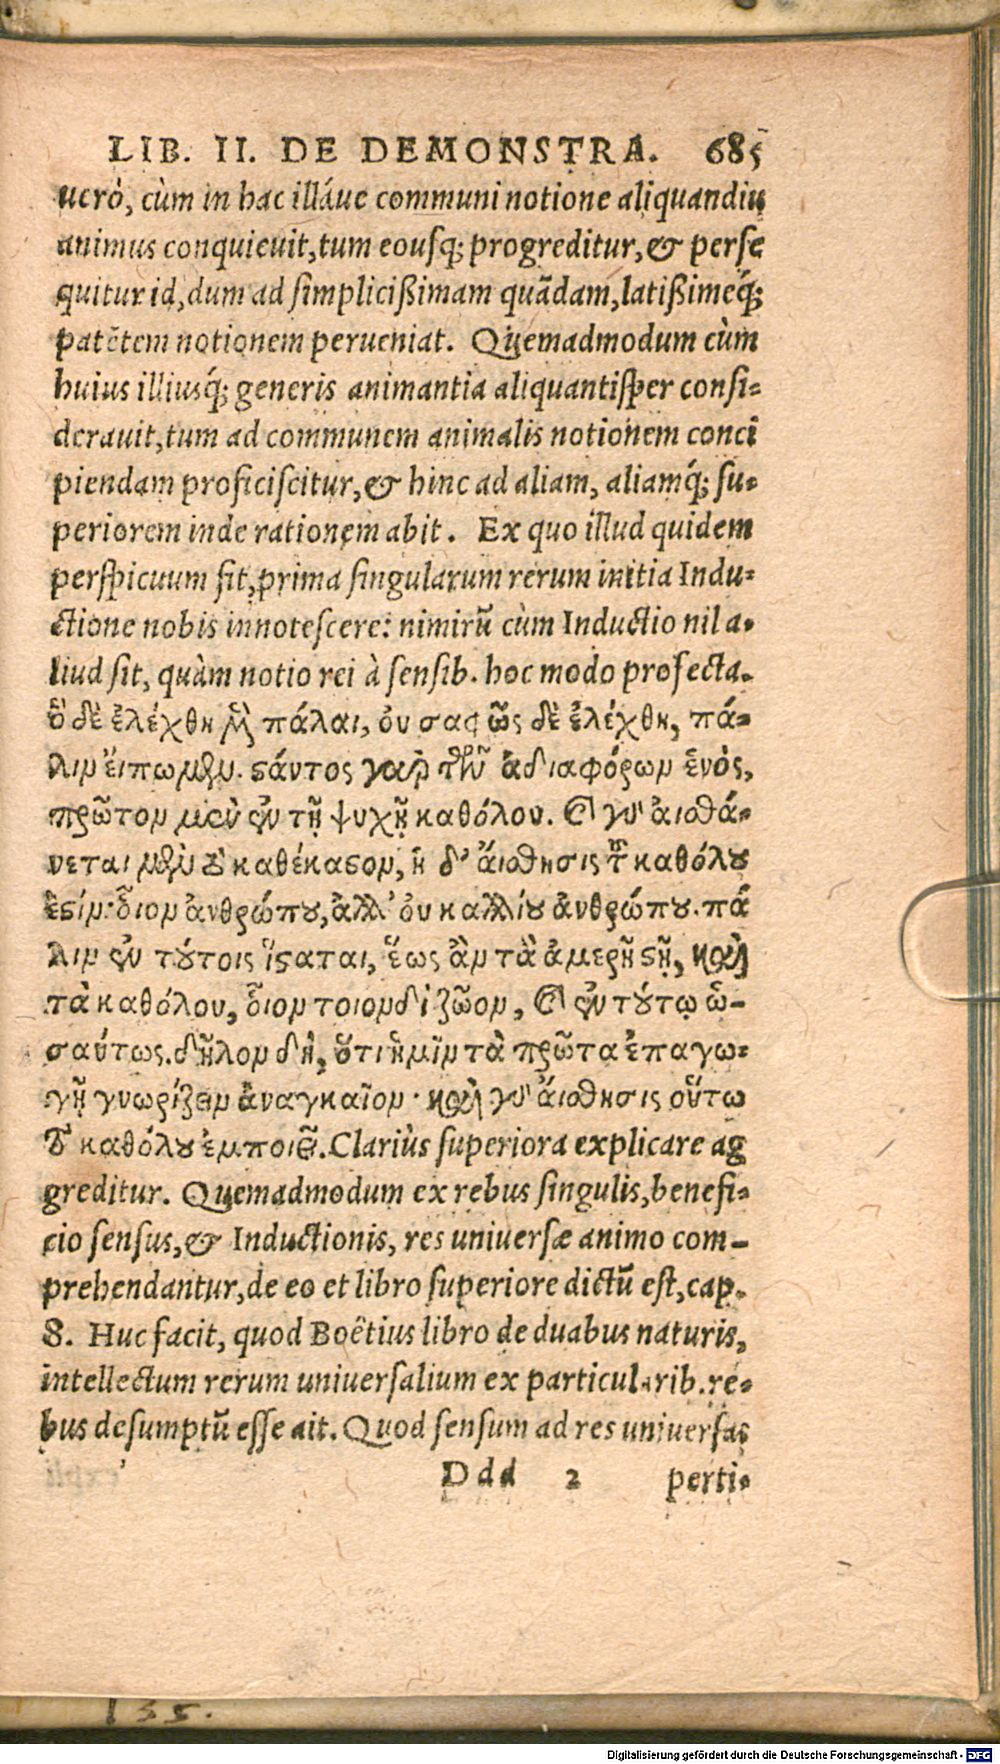 LIB. II. DE DEMONSTRA. 685
uerò, cùm in hac illáue communi notione aliquandiu
animus conquieuit, tum eousq; progreditur, & perse
quitur id, dum ad simplicißimam quãdam, latißimeq́;
patẽtem notionem perueniat. Quemadmodum cùm
huius illiusq́; generis animantia aliquantisper consi-
derauit, tum ad communem animalis notionem conci
piendam proficiscitur, & hinc ad aliam, aliamq́; su-
periorem inde rationem abit. Ex quo illud quidem
perspicuum sit, prima singularum rerum initia Indu-
ctione nobis innotescere: nimirũ cùm Inductio nil a-
liud sit, quàm notio rei à sensib. hoc modo profecta.
ὃ δὲ ἐλέχθη μὲν πάλαι, οὐ σαφῶς δὲ ἐλέχθη, πά-
λιν ἔιπωμεν. ϛάντος γὰρ τῶν ἀδιαφόρων ἑνὸς,
πρῶτον μὲν ἐν τῇ ψυχῇ καθόλου. καὶ γὰρ ἀισθά-
νεται μὲν τὸ καθέκαϛον, ἡ δ' ἄισθησις τοῦ καθόλου
ἐϛίν· ὁ͂ιον ἀνθρώπου, ἀλλ' ὀυ καλλίου ἀνθρώπου. πά
λιν ἐν τούτοις ἵϛαται, ἕως ἂν τὰ ἀμερῆ ϛῇ, καὶ
τὰ καθόλου, ὁ͂ιον τοιονδὶ ζῶον, καὶ ἐν τούτῳ ὡ-
σαύτως. δῆλον δὴ, ὅτι ἡμῖν τὰ πρῶτα ἐπαγω-
γῇ γνωρίζειν ἀναγκαῖον· καὶ γὰρ ἄισθησις οὕτω
τὸ καθόλου ἐμποιεῖ. Clariùs superiora explicare ag
greditur. Quemadmodum ex rebus singulis, benefi-
cio sensus, & Inductionis, res uniuersæ animo com-
prehendantur, de eo et libro superiore dictũ est, cap.
8. Huc facit, quod Boëtius libro de duabus naturis,
intellectum rerum uniuersalium ex particularib. re-
bus desumptũ esse ait. Quod sensum ad res uniuersas
Ddd 2 perti-
135.
Digitalisierung gefördert durch die Deutsche Forschungsgemeinschaft - DFG